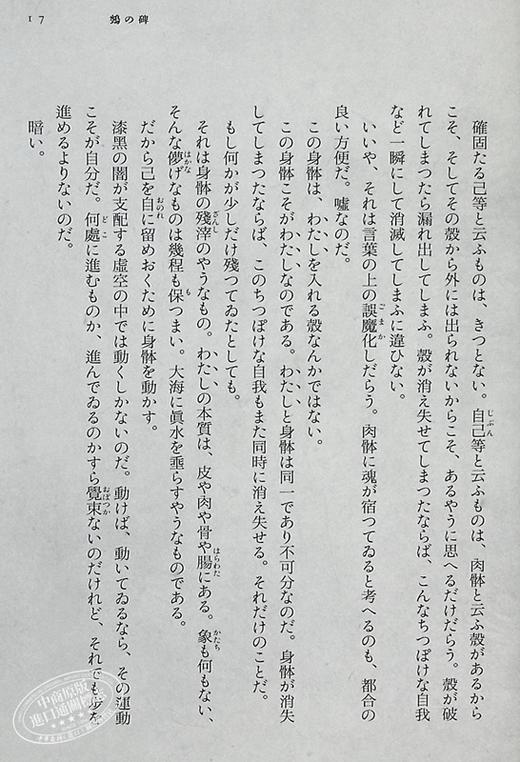 17
鵼の碑
確固たる己等と云ふものは、きつとない。自己等と云ふものは、肉骵と云ふ殼があるから
こそ、そしてその殼から外には出られないからこそ、あるやうに思へるだけだらう。殼が破
れてしまつたら漏れ出してしまふ。殼が消え失せてしまつたならば、こんなちつぽけな自我
など一瞬にして消滅してしまふに違ひない。
いいや、それは言葉の上の誤魔化しだらう。肉骵に魂が宿つてゐると考へるのも、都合の
良い方便だ。噓なのだ。
この身骵は、わたしを入れる殼なんかではない。
この身骵こそがわたしなのである。わたしと身骵は同一であり不可分なのだ。身骵が消失
してしまつたならば、このちつぽけな自我もまた同時に消え失せる。それだけのことだ。
もし何かが少しだけ殘つてゐたとしても。
それは身骵の殘滓のやうなもの。わたしの本質は、皮や肉や骨や腸にある。象も何もない、
そんな儚げなものは幾程も保つまい。大海に眞水を垂らすやうなものである。
だから己を自に留めおくために身骵を動かす。
漆黑の闇が支配する虛空の中では動くしかないのだ。動けば、動いてゐるなら、その運動
こそが自分だ。何處に進むものか、進んでゐるのかすら覺束ないのだけれど、それでも步を
進めるよりないのだ。
暗い。
中商原版
進口通關圖書